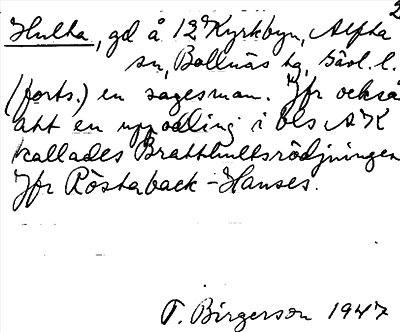 2
Hulta, gd å 12 Kyrkbyn, Alfta
sn, Bollnäs tg, Gävl. l.
(forts.) en sagesman. Jfr också
att en uppodling i öls ÄK
kallades Bratthultsrödjningen
Jfr Röstaback-Hanses.
T. Birgerson 1947